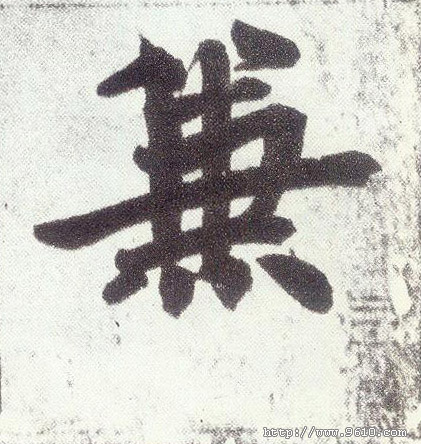 兼
http://www.9610.com